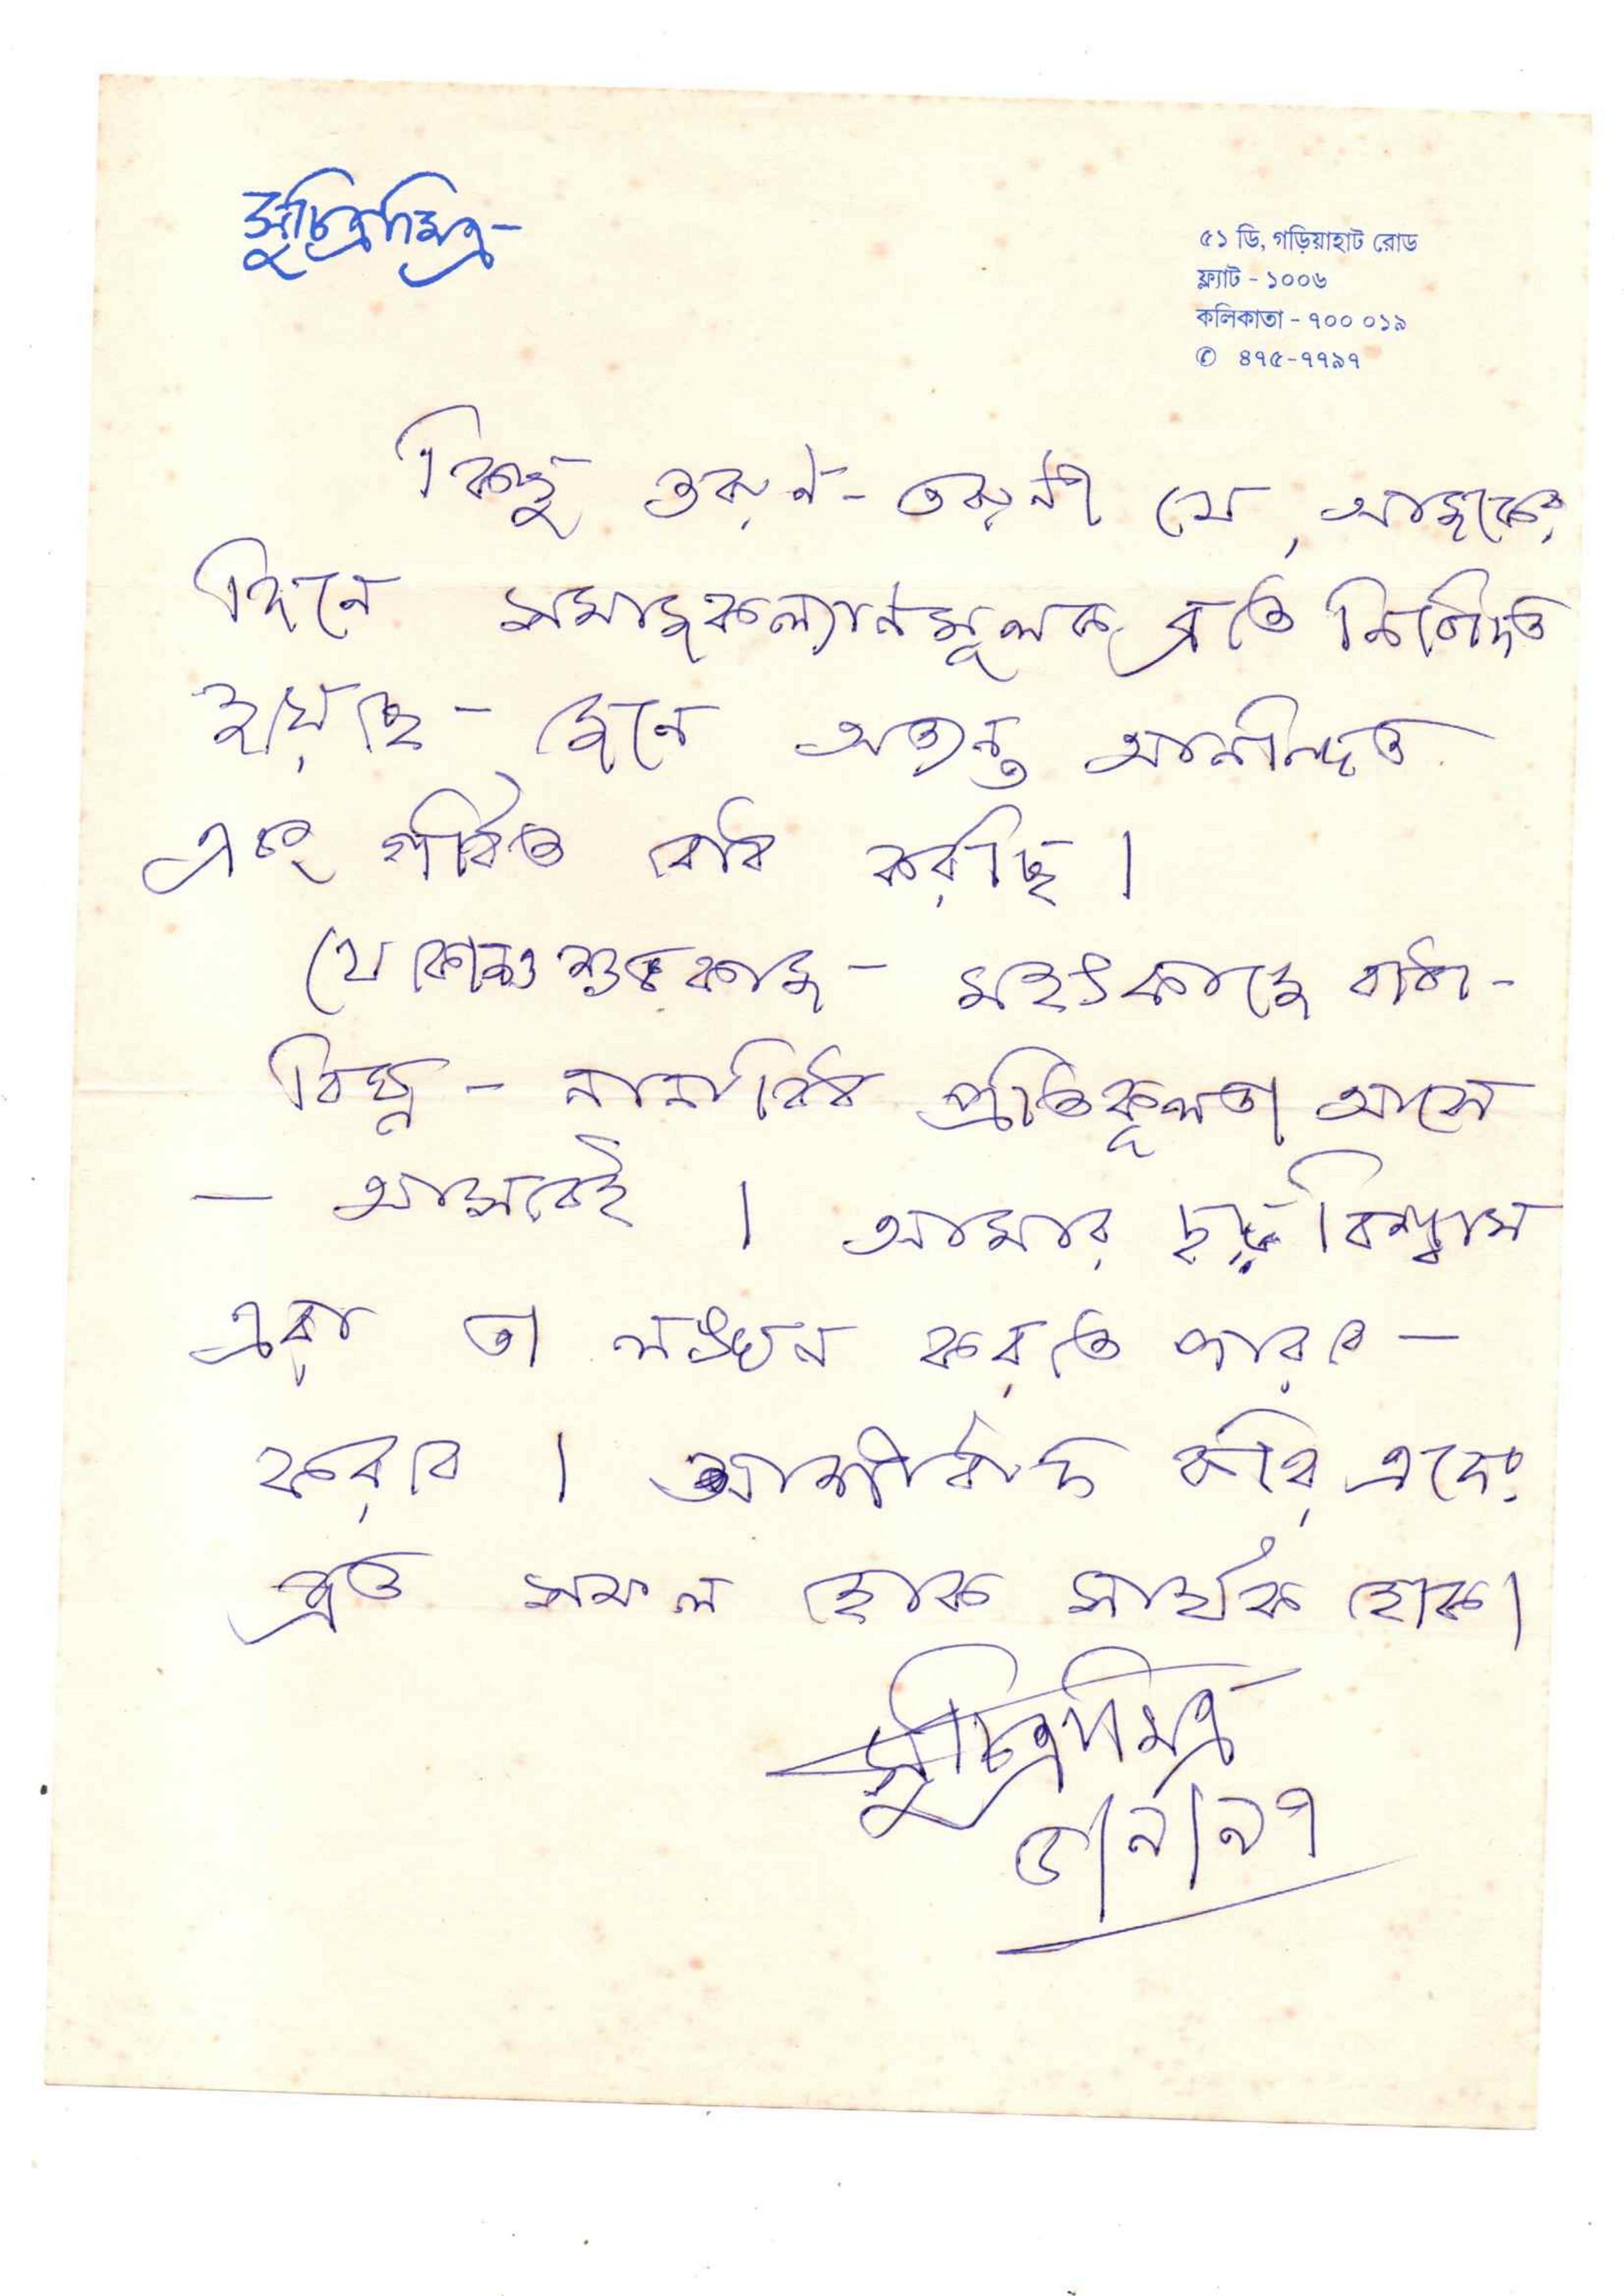 সুচিত্রা মিত্র
৫১ ডি, গড়িয়াহাট রোড
ফ্ল্যাট - ১০০৬
কলিকাতা - ৭০০ ০১৯
✆ ৪৭৫-৭৭৯৭
কিছু তরুণ - তরুণী যে, আজকের
দিনে সমাজকল্যাণমূলক ব্রতে নিবেদিত
হয়েছে - জেনে অত্যন্ত আনন্দিত
এবং গর্বিত বোধ করছি।
যে কোনও শুভকাজ - মহৎকাজে বাধা -
বিঘ্ন - নানাবিধ প্রতিকূলতা আসে
- আসবেই। আমার দৃঢ় বিশ্বাস
এরা তা লঙ্ঘন করতে পারবে -
করবে। আশীর্বাদ করি এদের
ব্রত সফল হোক সার্থক হোক।
সুচিত্রা মিত্র